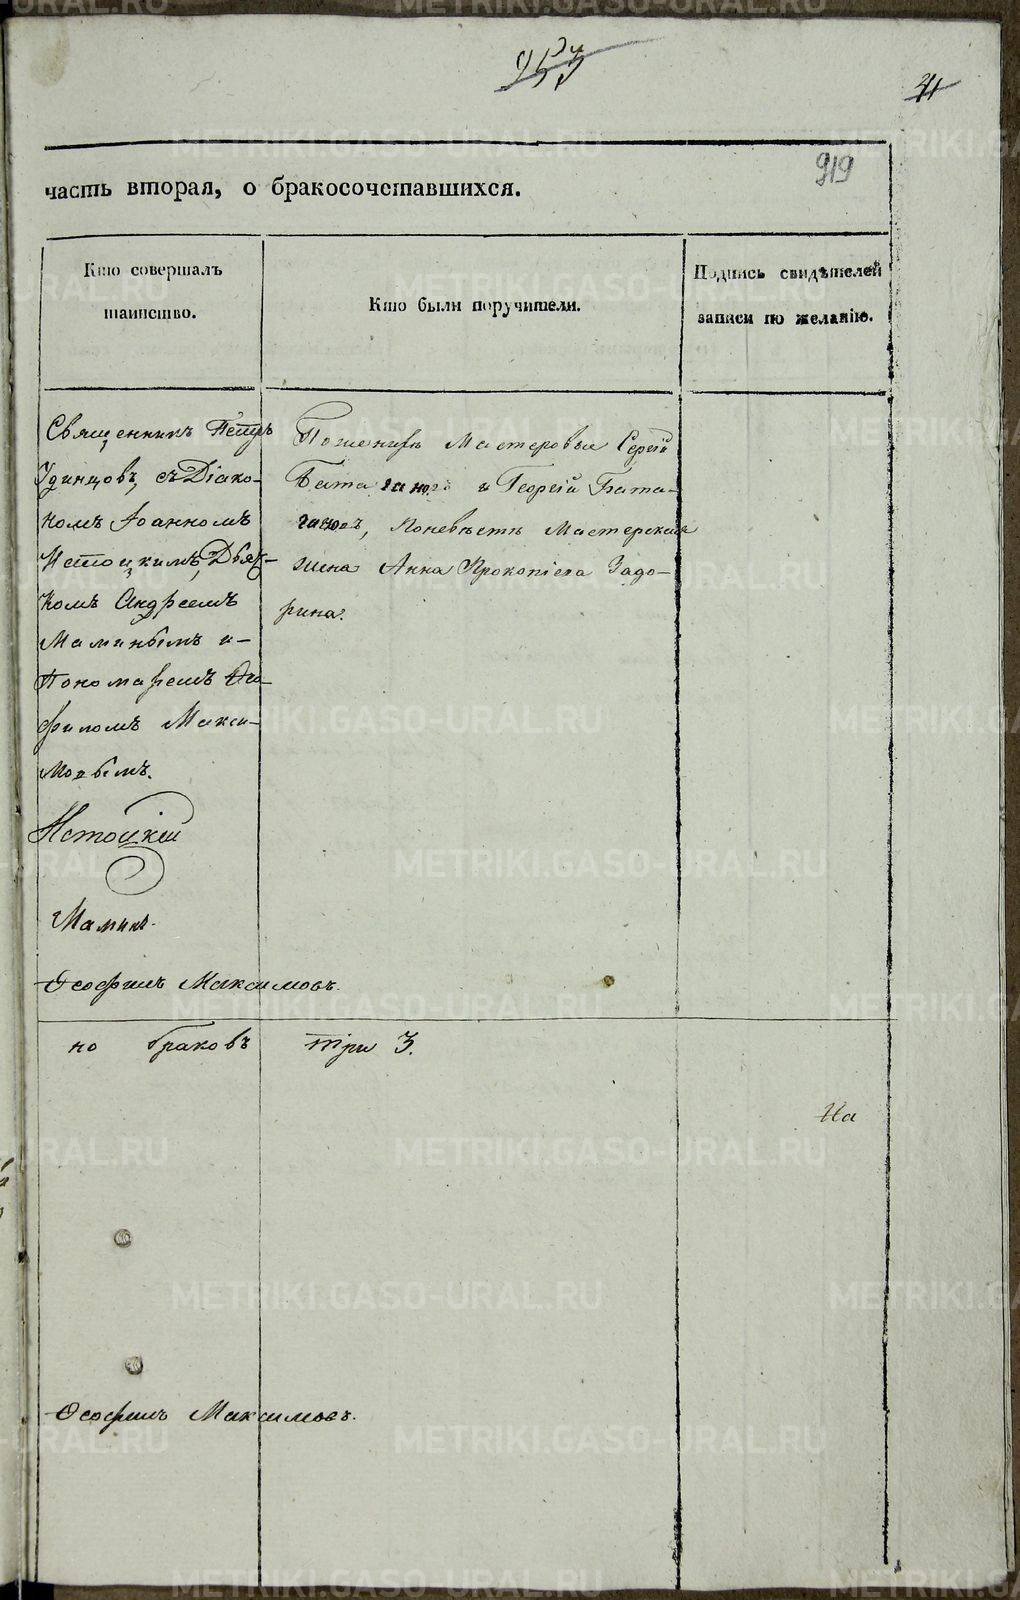 919
часть вторая, о бракосочетавшихся.
Кто совершалъ
таинство.
Кто были поручители.
Подпись свидѣтелей
записи по желанію.
Священникъ Петръ
Удинцовъ, съ Діако-
номъ Іоанномъ
Истоцкимъ, Дьяч-
комъ Андреемъ
Маминымъ и
Пономаремъ Ѳео-
филомъ Макси-
мовымъ.
Истоцкій
Маминъ.
Ѳеофилъ Максимовъ.
Поженихѣ Мастеровые Сергій
Батагановъ и Георгій Бата-
гановъ, Поневѣстѣ Мастерская
жена Анна Прокопіева Задо-
рина.
но браковъ три 3.
На
Ѳеофилъ Максимовъ.
METRIKI.GASO-URAL.RU